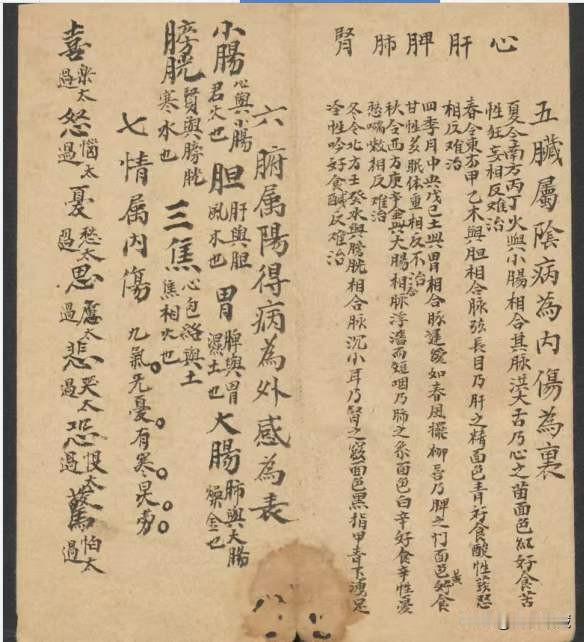 心肝脾肺腎
五臟屬陰病為内傷為裏
夏令南方丙丁火與小腸相合其脉洪大舌乃心之苗面色紅好食苦
性狂妄相反难治
春令東方甲乙木與胆相合脉弦長目乃肝之精面色青好食酸性發怒
相反难治
四季月中央戊己土與胃相合脉遲緩如春風擺柳唇乃脾之门面色黃好食
甘性芡眠体重相反不治
秋令西方庚辛金與大腸相合脉浮濇而短咽乃肺之系面色白辛好食辛性憂
愁喘欬相反难治
冬令北方壬癸水與膀胱相合脉沉小耳乃腎之竅面色黑指甲青下湧足
冷性吟好食鹹反难治
六腑属陽得病為外感為表
小腸 心與小腸君火也 胆 肝與胆风木也 胃 脾與胃濕土也 大腸 肺與大腸燥金也
膀胱 腎與膀胱寒水也 三焦 心包絡與土焦相火也
七情属内傷 九氣。先憂。有寒。炅。劳。
喜 楽太過 怒 惱太過 憂 愁太過 思 慮太過 悲 哭太過 恐 恨太過 驚 怕太過